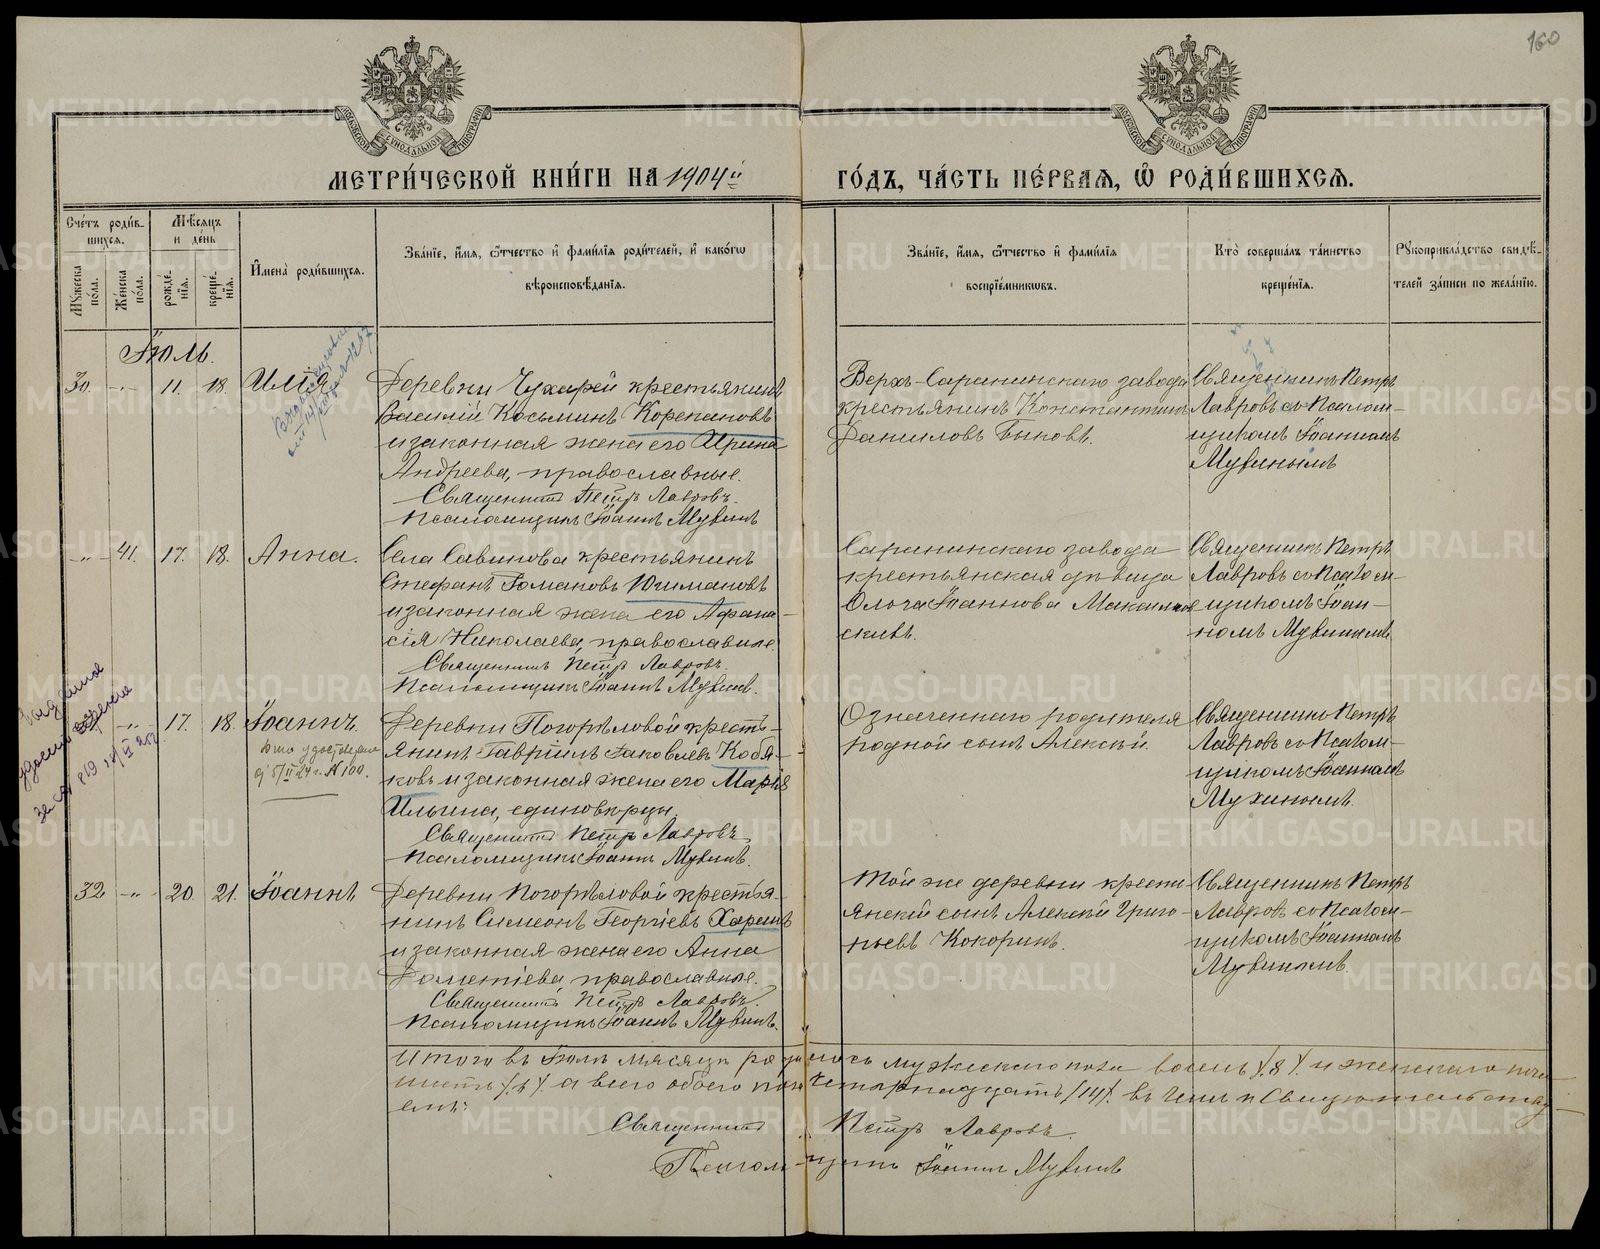 160
МЕТРИ́ЧЕСКОЙ КНИ́ГИ НА 1904й ГО́ДЪ, ЧА́СТЬ ПЕ́РВАѦ, Ѿ РОДИ́ВШИХСѦ.
Сче́тъ роди́в-
шихсѧ.
Мужеска по́ла.
Же́нска по́ла.
Мѣ́сѧцъ
и де́нь
рожде́-
нїѧ.
креще́-
нїѧ.
И҆мена̀ роди́вшихсѧ.
Зва́нїе, и҆́мѧ, ѻ҆́тчество и҆ фами́лїѧ роди́телей, и҆ како́гѡ
вѣроисповѣ́данїѧ.
Зва́нїе, и҆́мѧ, ѻ҆́тчество и҆ фами́лїѧ
воспрїе́мниковъ.
Кто̀ соверша́лъ та́инство
креще́нїѧ.
Рукоприкла́дство свидѣ́-
телей за́писи по жела́нїю.
Іюль.
30. -"- 11. 18. Илія
Деревни Чухарей крестьянинъ
Василій Косьминъ Корепановъ
и законная жена его Ирина
Андреева, православные.
Священникъ Петръ Лавровъ.
Псаломщикъ Іоаннъ Мухинъ
Верхъ-Саранинскаго завода
крестьянинъ Константинъ
Даниловъ Быковъ.
Священникъ Петръ
Лавровъ съ Псалом-
щикомъ Іоанномъ
Мухинымъ
-"- 41. 17. 18. Анна.
Села Савинова крестьянинъ
Стефанъ Романовъ Юшмановъ
и законная жена его Афана-
сія Николаева, православные
Священникъ Петръ Лавровъ.
Псаломщикъ Іоаннъ Мухинъ.
Саранинскаго завода
крестьянская дѣвица
Ольга Іоаннова
Священникъ Петръ
Лавровъ съ Псалом-
щикомъ Іоан-
номъ Мухинымъ
-"- 17. 18. Іоаннъ.
№ 100.
Деревни Погорѣловой кресть-
янинъ Гавріилъ Іаковлевъ Кобя-
ковъ и законная жена его Марія
Ильина, единовѣрцы.
Священникъ Петръ Лавровъ
Псаломщикъ Іоаннъ Мухинъ.
Означеннаго родителя
родной сынъ Алексѣй.
Священникъ Петръ
Лавровъ съ Псалом-
щикомъ Іоанномъ
Мухинымъ.
32 -"- 20. 21. Іоаннъ
Деревни Погорѣловой крестья-
нинъ Симеонъ Георгіевъ Харинъ
и законная жена его Анна
Дометіева, православные.
Священникъ Петръ Лавровъ.
Псаломщикъ Іоаннъ Мухинъ.
Той же деревни кресть-
янскій сынъ Алексѣй Григо-
рьевъ Кокоринъ.
Священникъ Петръ
Лавровъ съ Псалом-
щикомъ Іоанномъ
Мухинымъ.
Итого въ Іюлѣ мѣсяцѣ родилось мужескаго пола восемь /8/ и женскаго пола
шесть /6/ а всего обоего пола четырнадцать /14/. въ чемъ и свидѣтельству-
емъ:
Священникъ Петръ Лавровъ.
Псаломщикъ Іоаннъ Мухинъ
METRIKI.GASO-URAL.RU